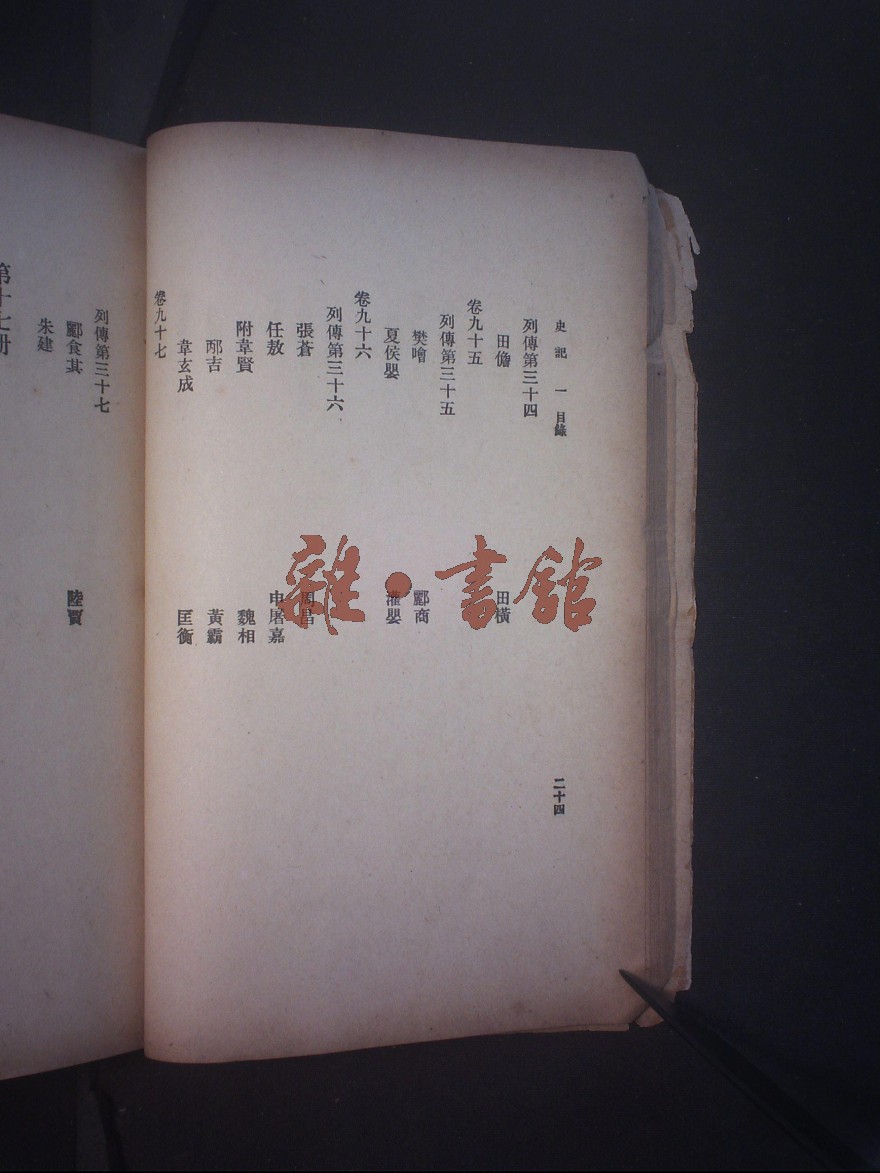 史記一 目錄 二十四
列傳第三十四
田儋 田橫
卷九十五
列傳第三十五
樊噲 酈商
夏侯嬰 灌嬰
卷九十六
列傳第三十六
張蒼 周昌
任敖 申屠嘉
附韋賢 魏相
邴吉 黃霸
韋玄成 匡衡
卷九十七
列傳第三十七
酈食其 陸賈
朱建
第十七冊
雜·書館